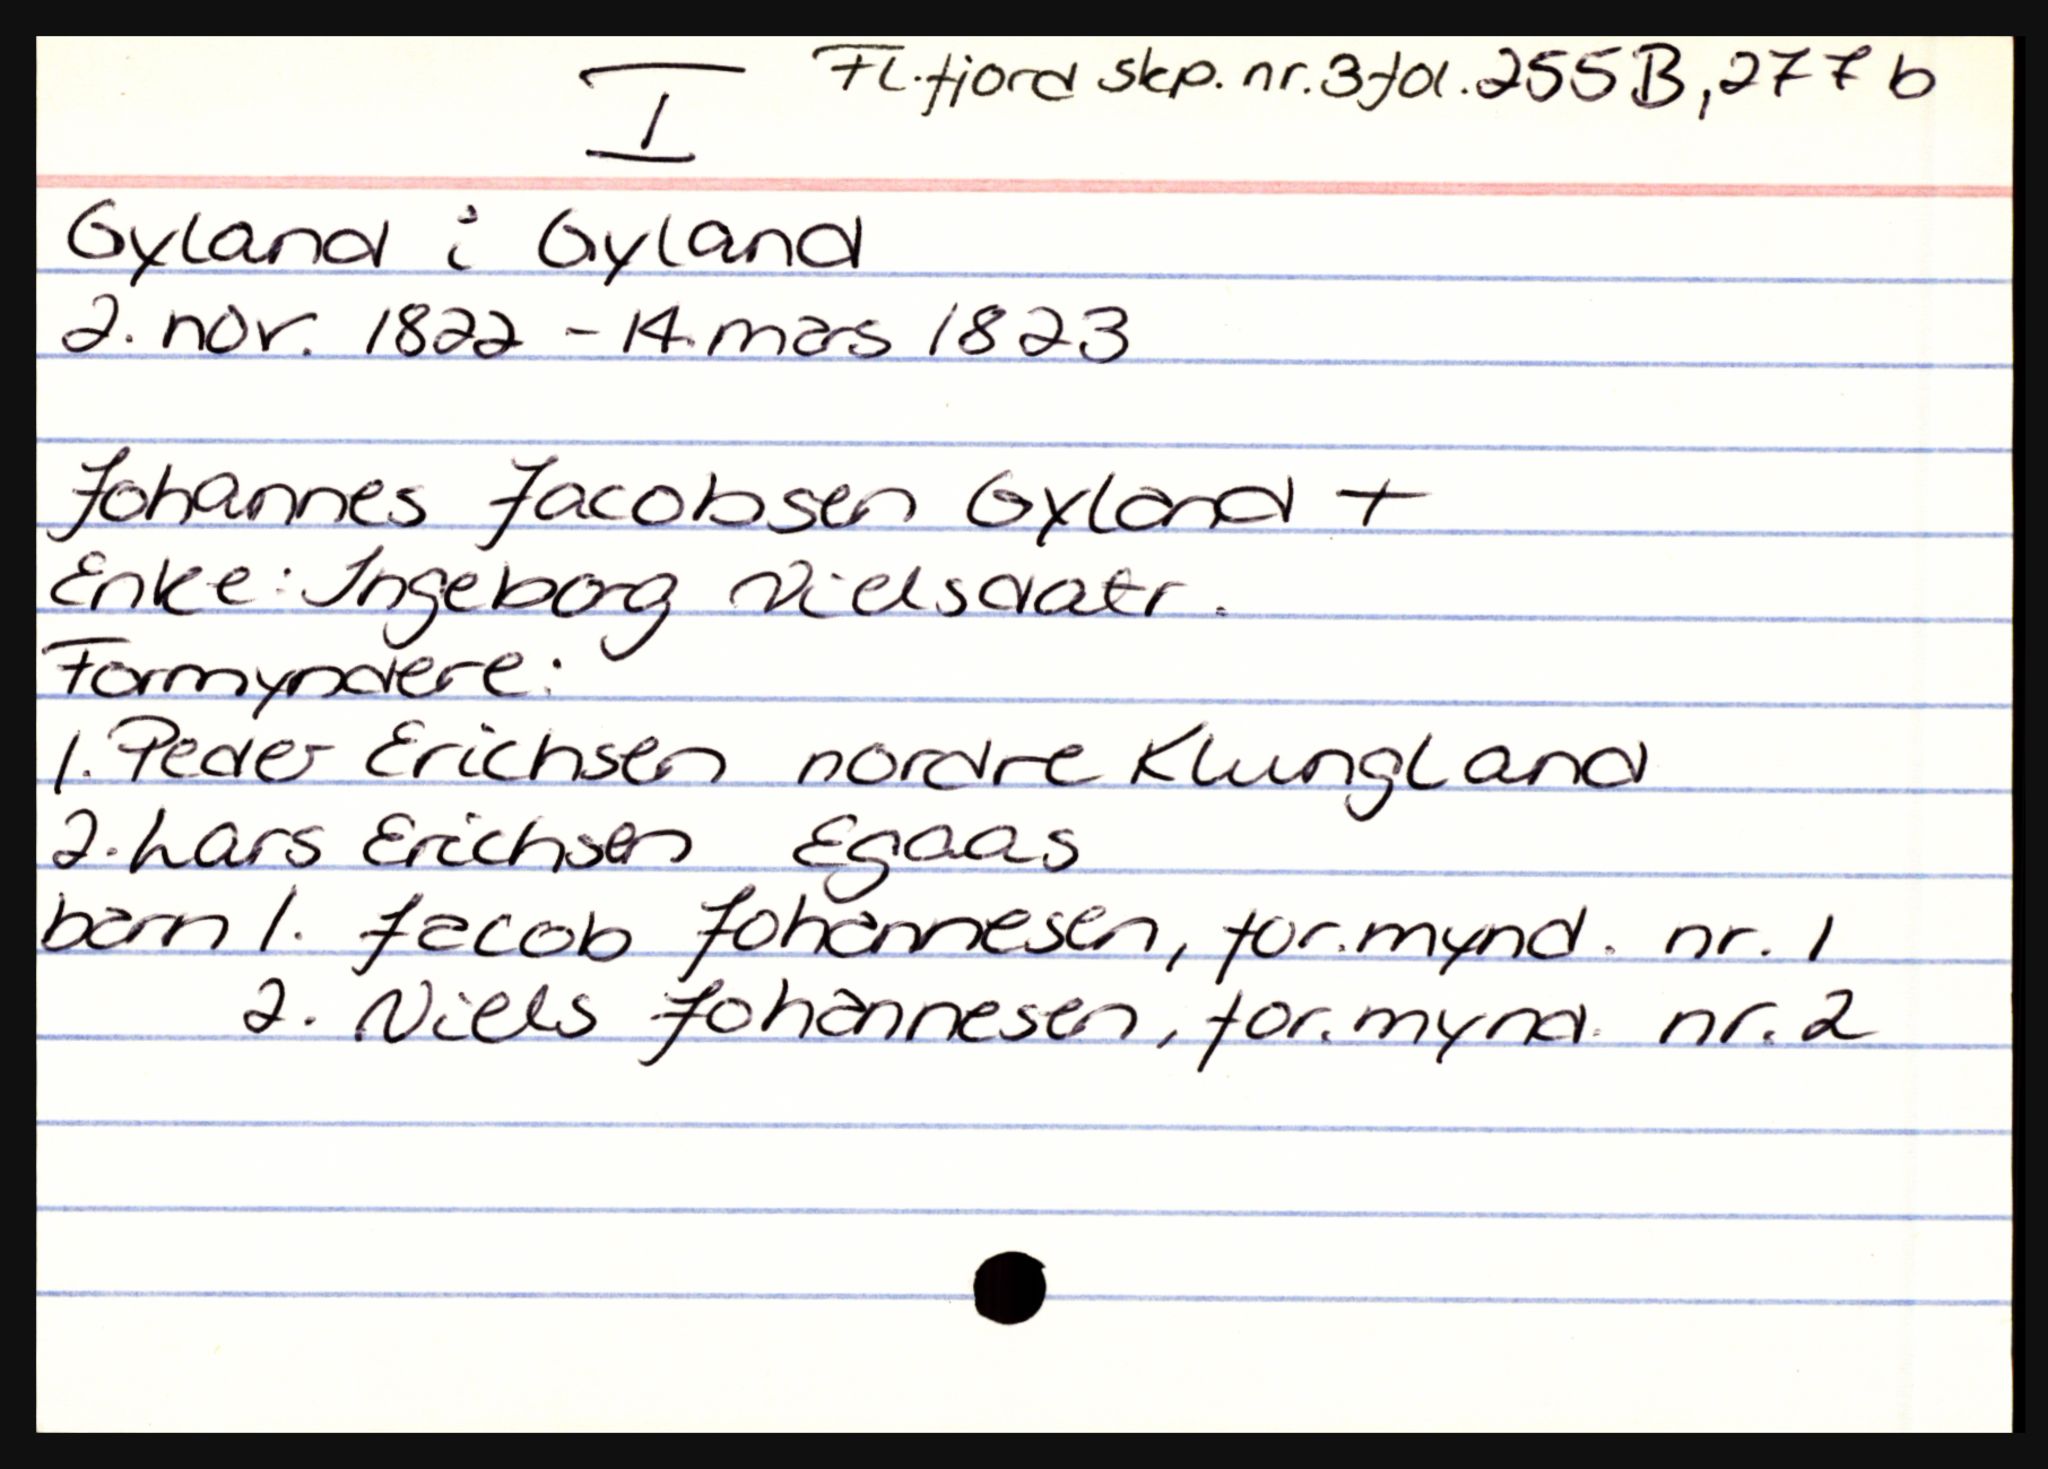 I
Fl.fjord skp. nr. 3 fol. 255B, 277b
Gyland i Gyland
2. nov. 1822 - 14. mars 1823
Johannes Jacobsen Gyland +
Enke: Ingeborg Nielsdatr.
Formyndere:
1. Peder Erichsen nordre Klungland
2. Lars Erichsen Egaas
barn 1. Jacob Johannesen, for.mynd. nr. 1
2. Niels Johannesen, for.mynd. nr. 2